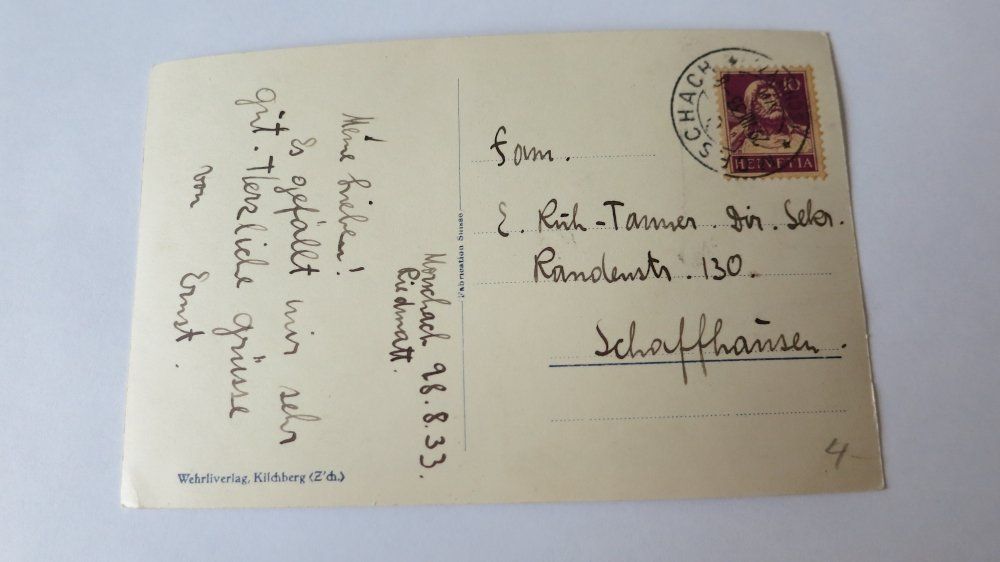 Morschach 28.8.33.
Riedmatt.
Meine Lieben!
Es gefällt mir sehr
gut. Herzliche Grüsse
von Ernst.
Fabrication Suisse
Wehrliverlag, Kilchberg (Z'ch.)
SCHACH
10
HELVETIA
Fam.
E. Rüh-Tanner. Dir. Sekr.
Randenstr. 130.
Schaffhausen.
4-